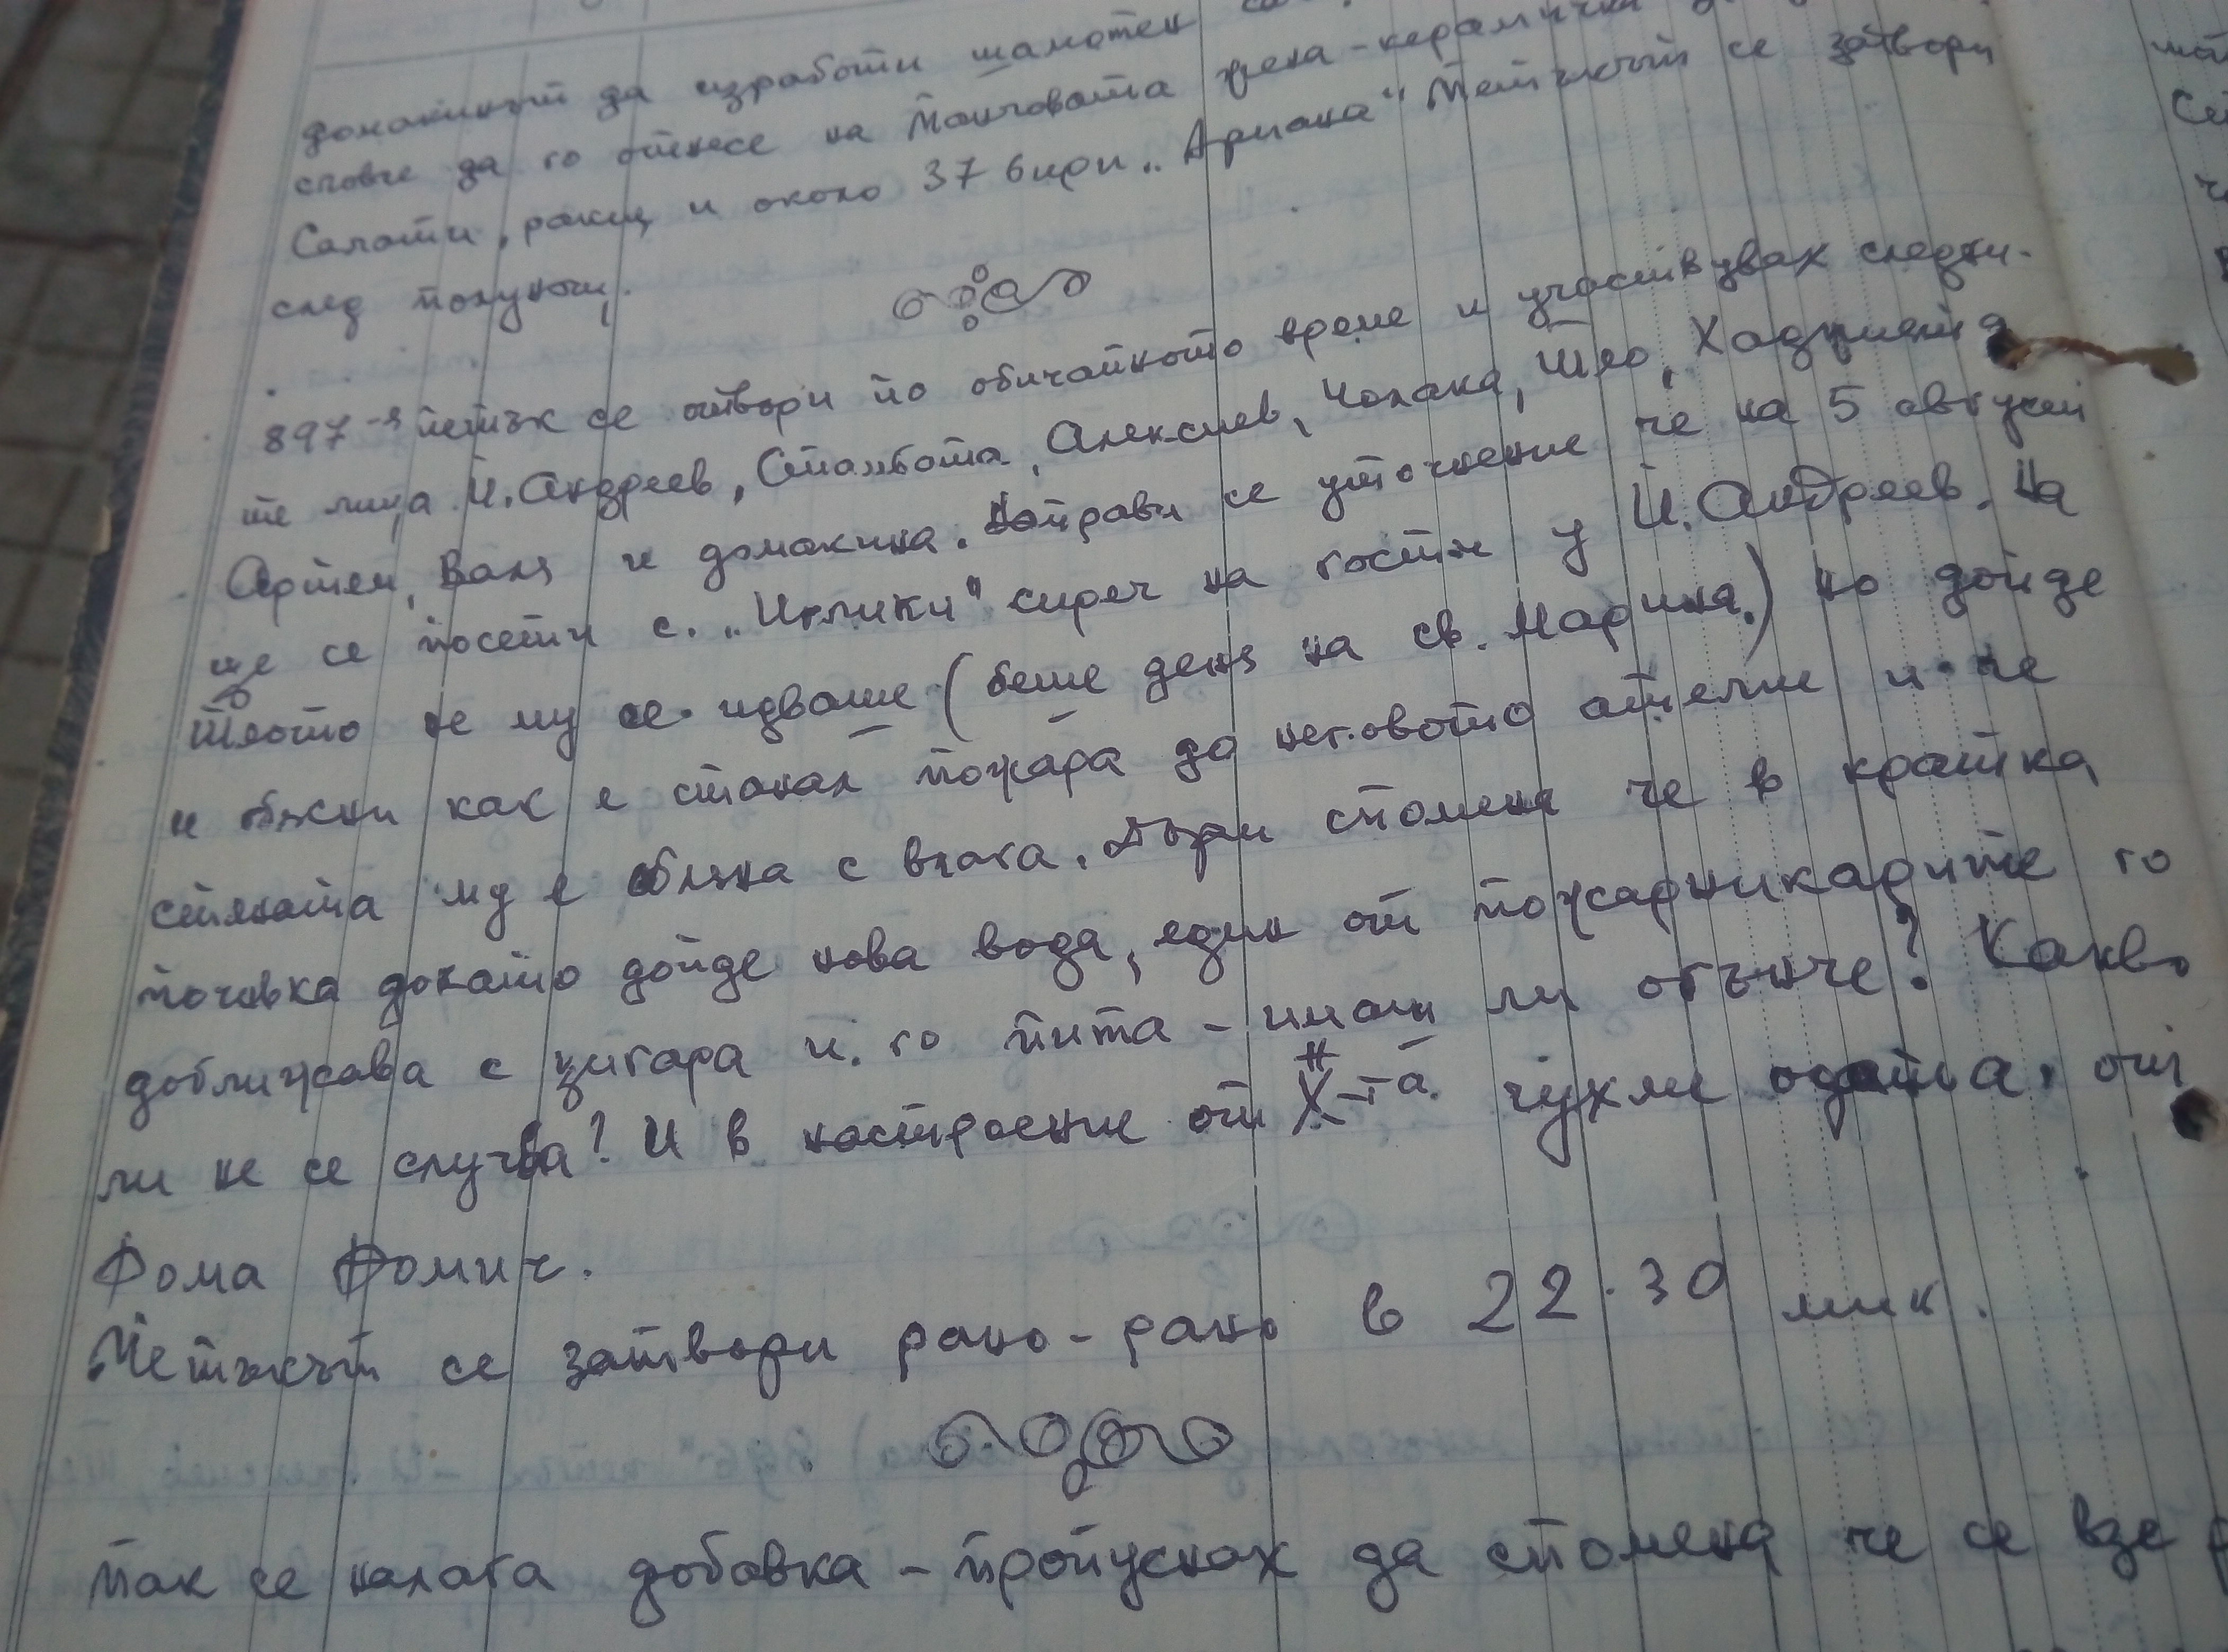 домакинът да изработи шамотен
словче да го отнесе на Манчовата грена-керамичка
Салати, ракии и около 37 бири „Ариана" Петъкът се затвори
след полунощ.
897-я петък се отвори по обичайното време и участвувах следни-
те лица Й. Андреев, Стамбата, Алексиев, Чолака, Шео, Хаджията
Артем, Валя и домакина. Направи се уточнение че на 5 август
ще се посети с. „Иглики" сиреч на гости у Й. Андреев. На
Шеото не му се идваше (беше деня на св. Марина) но дойде
и обясни как е станал пожара до неговото ателие и че
стената му е обляна с влага. Дори спомена че в кратка
почивка докато дойде нова вода, един от пожарникарите го
доближава с цигара и го пита - имаш ли огънче? Какво
ли не се случва? И в настроение от X-та чукме одата, от
Фома Фомич.
Петъкът се затвори рано-рано в 22.30 мин.
Пак се налага добавка - пропуснах да спомена че се взе